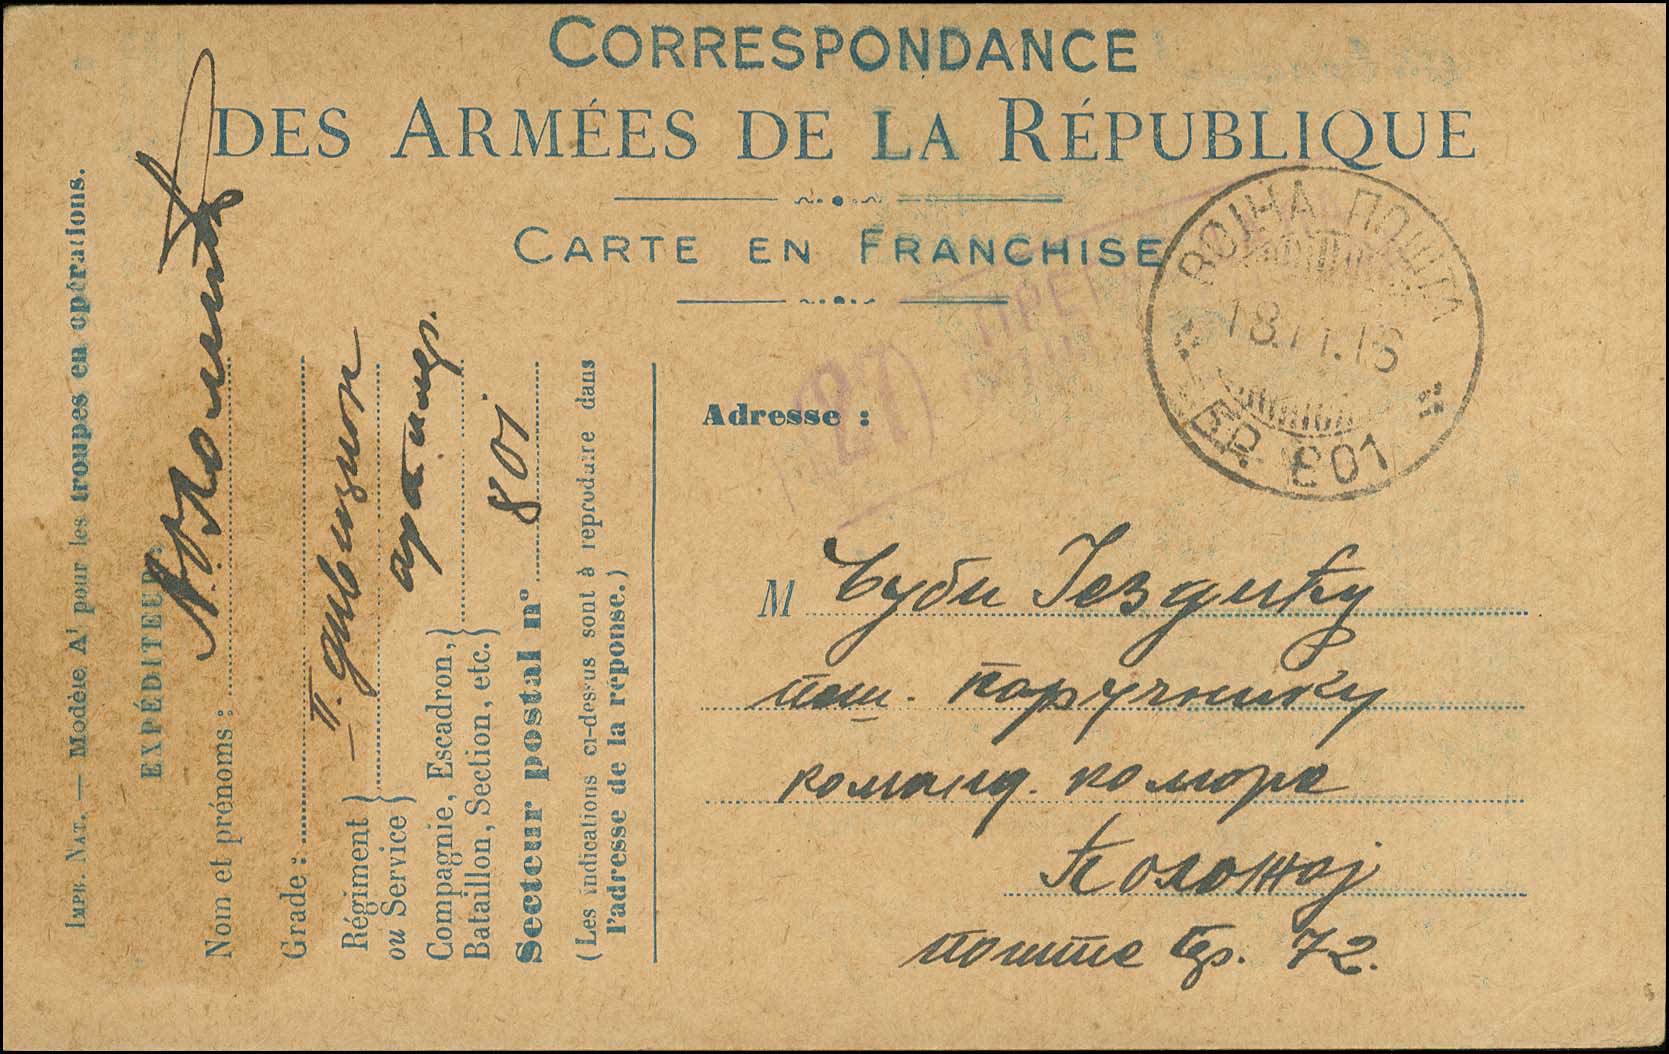 CORRESPONDANCE
DES ARMÉES DE LA RÉPUBLIQUE
CARTE EN FRANCHISE
ВОЈНА ПОШТА
18.11.16
БР. 801
27)
IMPR. NAT. — Modèle A¹ pour les troupes en opérations.
EXPÉDITEUR:
Nom et prénoms :
Grade :
Régiment
ou Service
II. дивизион
Compagnie, Escadron,
Bataillon, Section, etc.
Secteur postal n° 801
(Les indications ci-dessus sont à reproduire dans
l'adresse de la réponse.)
Adresse :
M Ђуби Јездићу
поручнику
команд. коморе
поште бр. 72.